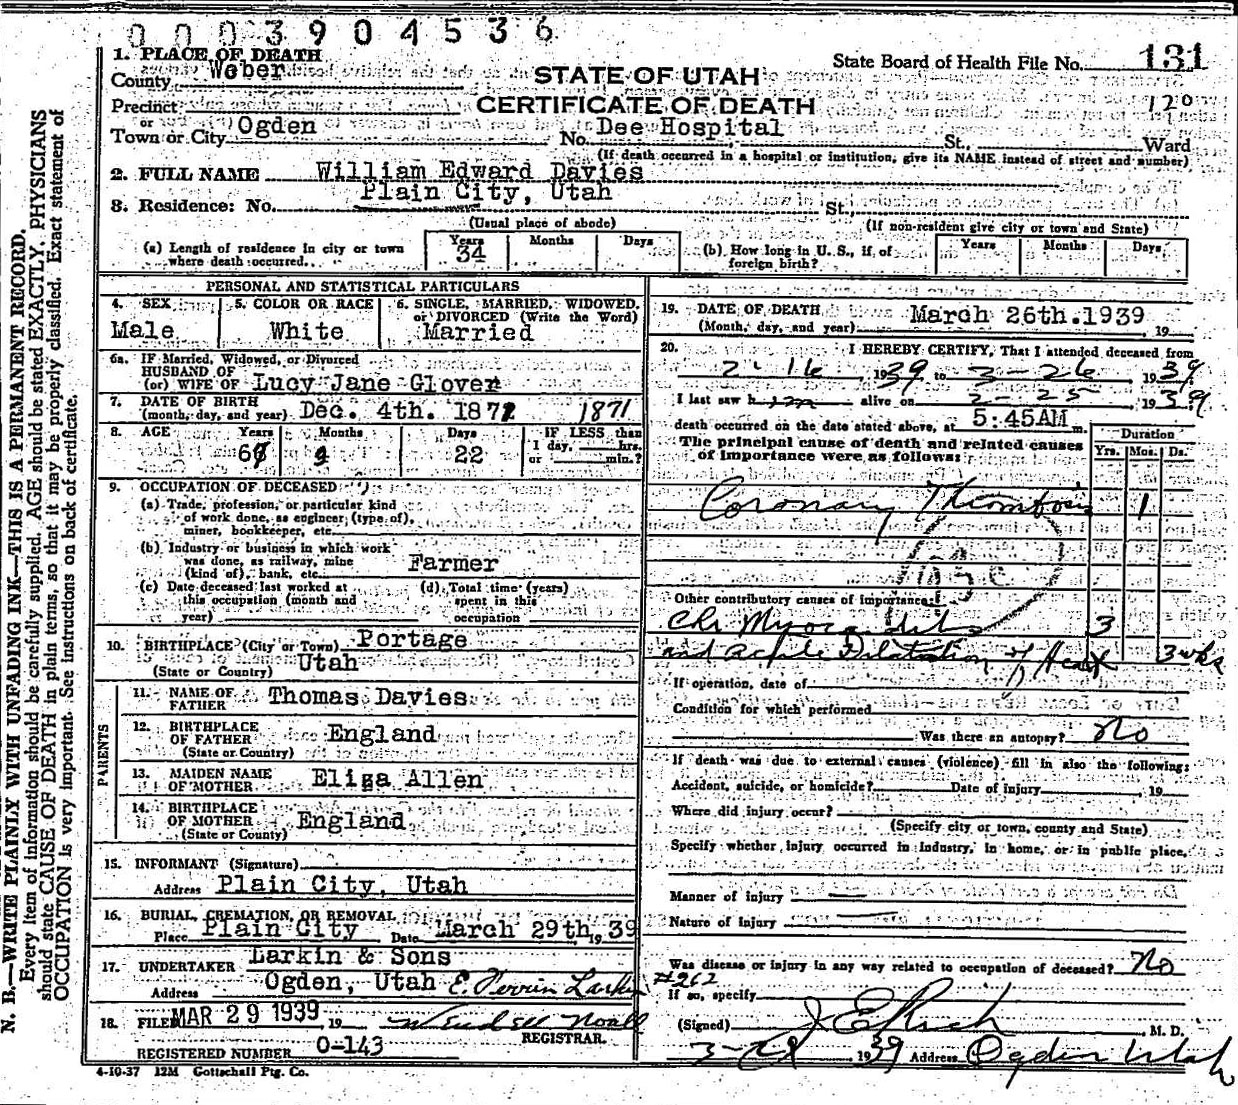 0003904536
1. PLACE OF DEATH
County Weber
STATE OF UTAH
State Board of Health File No. 131
Precinct
CERTIFICATE OF DEATH
120
or
Town or City Ogden No. Dee Hospital St., Ward
(If death occurred in a hospital or institution, give its NAME instead of street and number)
2. FULL NAME William Edward Davies
Plain City, Utah
3. Residence: No. St.,
(Usual place of abode) (If non-resident give city or town and State)
(a) Length of residence in city or town where death occurred. Years 34 Months Days
(b) How long in U. S., if of foreign birth? Years Months Days
PERSONAL AND STATISTICAL PARTICULARS
4. SEX Male
5. COLOR OR RACE White
6. SINGLE, MARRIED, WIDOWED, or DIVORCED (Write the Word) Married
6a. IF Married, Widowed, or Divorced
HUSBAND OF
(or) WIFE OF Lucy Jane Glover
7. DATE OF BIRTH
(month, day, and year) Dec. 4th. 1871 1871
8. AGE Years 67 Months Days 22
IF LESS than 1 day, hrs. or min.?
9. OCCUPATION OF DECEASED
(a) Trade, profession, or particular kind
of work done, as engineer, (type of),
miner, bookkeeper, etc.
(b) Industry or business in which work
was done, as railway, mine
(kind of), bank, etc. Farmer
(c) Date deceased last worked at
this occupation (month and
year)
(d) Total time (years)
spent in this
occupation
10. BIRTHPLACE (City or Town) Portage
Utah
(State or Country)
PARENTS
11. NAME OF FATHER Thomas Davies
12. BIRTHPLACE OF FATHER England
(State or Country)
13. MAIDEN NAME OF MOTHER Eliza Allen
14. BIRTHPLACE OF MOTHER England
(State or County)
15. INFORMANT (Signature)
Address Plain City, Utah
16. BURIAL, CREMATION, OR REMOVAL
Place Plain City Date March 29th, 19 39
17. UNDERTAKER Larkin & Sons
Address Ogden, Utah E. Perrin Larkin #262
18. FILED MAR 29 1939, 19 Wendell Noall
REGISTRAR.
REGISTERED NUMBER 0-143
4-10-37 12M Gottschall Ptg. Co.
19. DATE OF DEATH
(Month, day, and year) March 26th. 1939 19
20. I HEREBY CERTIFY, That I attended deceased from
2-16, 1939 to 3-26 1939
I last saw him alive on 2-25 1939
death occurred on the date stated above, at 5:45AM m.
The principal cause of death and related causes
of importance were as follows:
Duration
Yrs. Mos. Ds.
Coronary Thombosis 1
Other contributory causes of importance:
Chr Myocarditis 3
and acute Dilatation of Heart 3 wks
If operation, date of
Condition for which performed
Was there an autopsy? No
If death was due to external causes (violence) fill in also the following:
Accident, suicide, or homicide? Date of injury 19
Where did injury occur?
(Specify city or town, county and State)
Specify whether injury occurred in industry, in home, or in public place.
Manner of injury
Nature of injury
Was disease or injury in any way related to occupation of deceased? No
If so, specify
(Signed) J E Rich M. D.
3-28, 1939 Address Ogden Utah
N. B.—WRITE PLAINLY WITH UNFADING INK—THIS IS A PERMANENT RECORD.
Every item of information should be carefully supplied. AGE should be stated EXACTLY. PHYSICIANS
should state CAUSE OF DEATH in plain terms, so that it may be properly classified. Exact statement of
OCCUPATION is very important. See instructions on back of certificate.